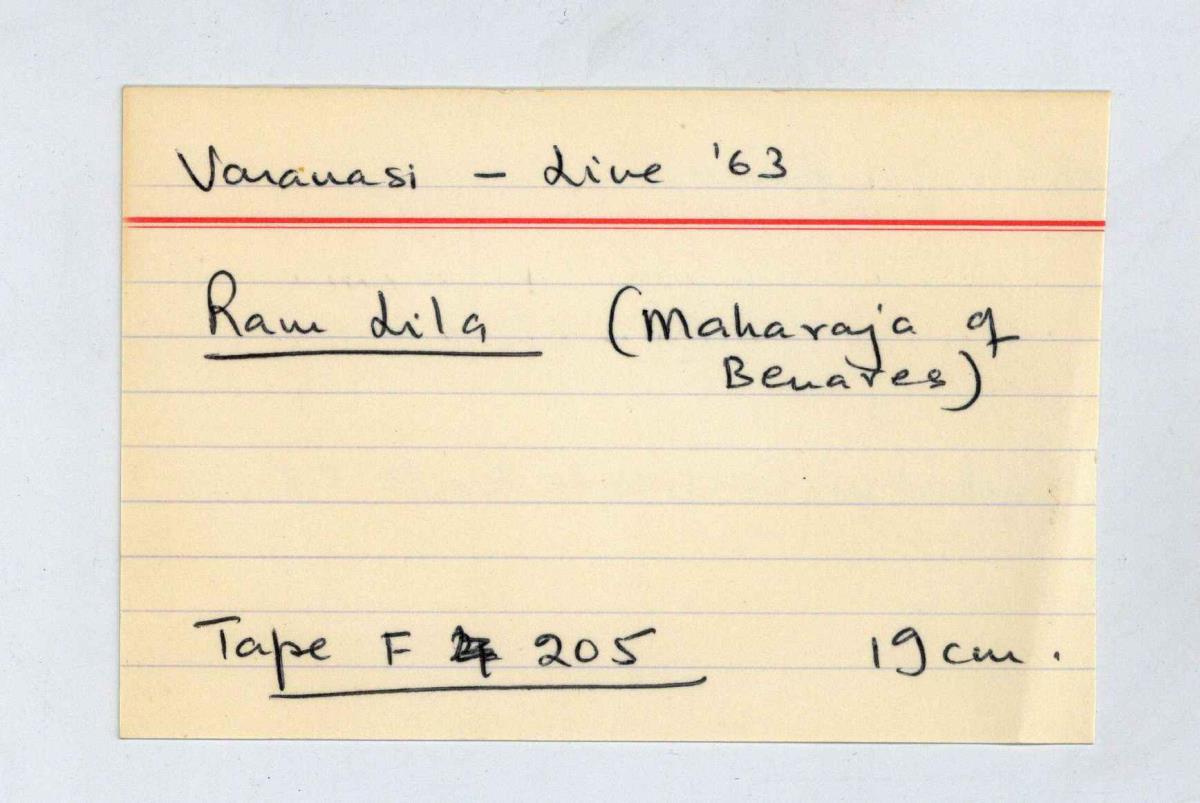 Varanasi - Live '63
Ram Lila (Maharaja of
Benares)
Tape F 205 19 cm.